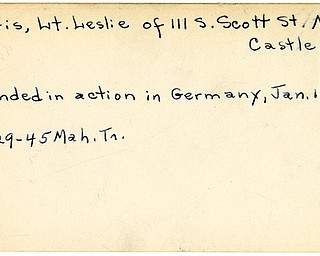 is, Lt. Leslie of 111 S. Scott St.
Castle
nded in action in Germany, Jan. 1
29-45 Mah. Tr.